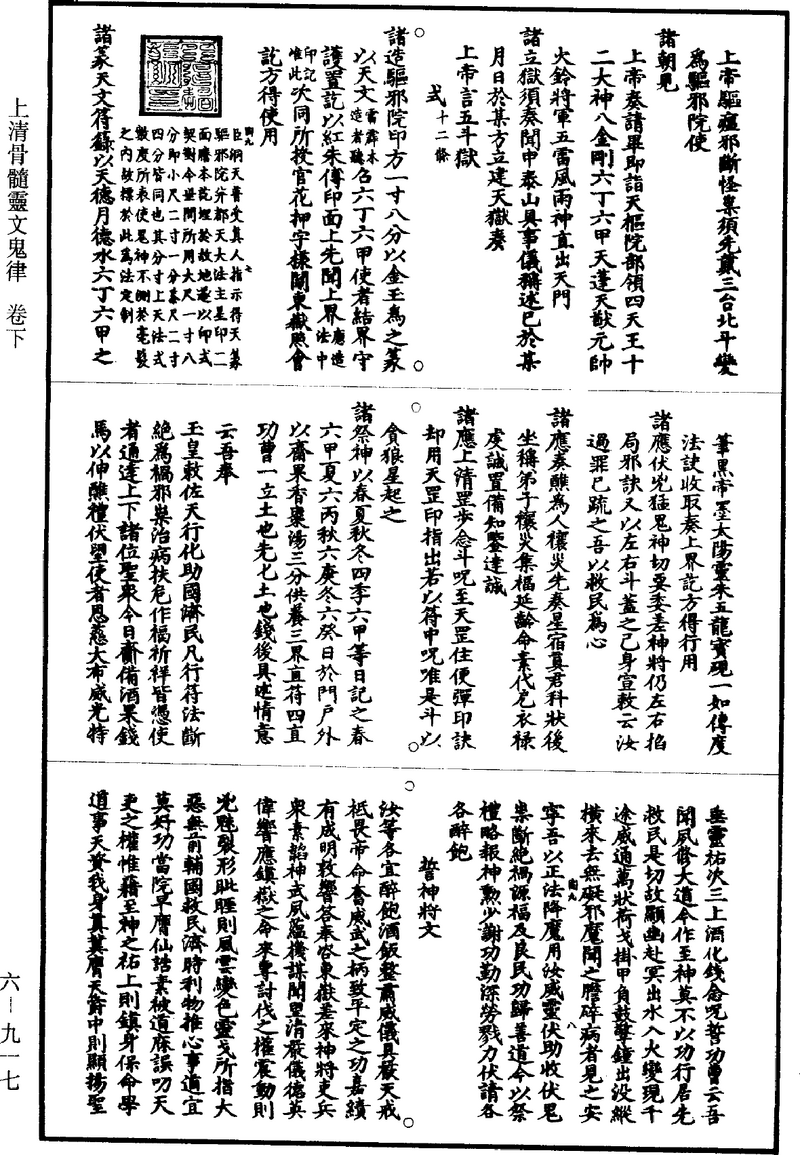 上帝驅瘟邪斷怪祟須先戴三台北斗變
為驅邪院使
諸朝見
上帝奏請畢即詣天樞院部領四天王十
二大神八金剛六丁六甲天蓬天猷元帥
火鈴將軍五雷風雨神直出天門
諸立獄須奏聞申泰山具事儀稱述已於某
月日於某方立建天獄奏
上帝言五斗獄
式十二條
諸造驅邪院印方一寸八分以金玉為之篆
以天文雷霹木造者聽召六丁六甲使者結界守
護置訖以紅朱傳印面上先聞上界應造法中
印記惟此次同所授官花押字牒關東嶽照會
訖方得使用
臣炳天普受真人指示得天篆
驅邪院分都天大法主是印二
面磨本訖埋於故地遂以印式
契對今世間所用大尺一寸八
分即小尺二寸一分幕尺二寸
四分皆同也其分寸上天法式
數度所表使鬼神不測於毫髮
之內故標於此為法定制
諸篆天文符籙以天德月德水六丁六甲之
筆黑帝墨太陽靈朱五龍寶硯一如傳度
法訣收取奏上界訖方得行用
諸應伏兇猛鬼神切要委差神將仍左右掐
局邪訣又以左右斗蓋之己身宣敕云汝
過罪已疏之吾以救民為心
諸應奏醮為人禳災先奏星宿真君科狀後
坐稱弟子禳災集福延齡命素代厄衣祿
虔誠置備知鑒達誠
諸應上清罡步念斗呪至天罡住便彈印訣
却用天罡印指出若以符中呪唯是斗以
貪狼星起之
諸祭神以春夏秋冬四季六甲等日記之春
六甲夏六丙秋六庚冬六癸日於門戶外
以齋果香棗湯三分供養三界直符四直
功曹一立土也先七土地錢後具述情意
云吾奉
玉皇敕佐天行化助國濟民凡行符法斷
絕為禍邪祟治病扶危作福祈祥皆憑使
者通達上下諸位聖眾今日齋備酒果錢
馬以伸醮禮伏望使者恩慈大布威光特
垂靈祐次三上酒化錢念呪誓功曹云吾
聞夙修大道今作至神莫不以功行居先
救民是切故顯幽赴冥出水入火變現千
途威通萬狀荷戈掛甲負鼓擊鐘出沒縱
橫來去無礙邪魔聞之膽碎病者見之安
寧吾以正法降魔用汝威靈伏助收伏鬼
祟斷絕禍源福及良民功歸善道今以祭
禮略報神勳少謝功勤深勞戮力伏請各
各醉飽
誓神將文
汝等各宜醉飽酒飯整肅威儀具嚴天戒
祇畏帝命奮威武之柄致平定之功嘉績
有成明敕響答奉咨東嶽差來神將吏兵
眾素韜神武夙蘊機謀聞望清嚴儀德英
偉響應鎮嶽之命來專討伐之權震動則
兇魅裂形眦睚則風雲變色靈戈所指大
惡無前輔國救民濟時利物推心事道宜
莫好功當院早膺仙誥素被道庥誤叨天
吏之權惟藉至神之祐上則鎮身保命學
道事天資我身真冀膺天爵中則顯揚聖
上清骨髓靈文鬼律 卷下
六—九一七